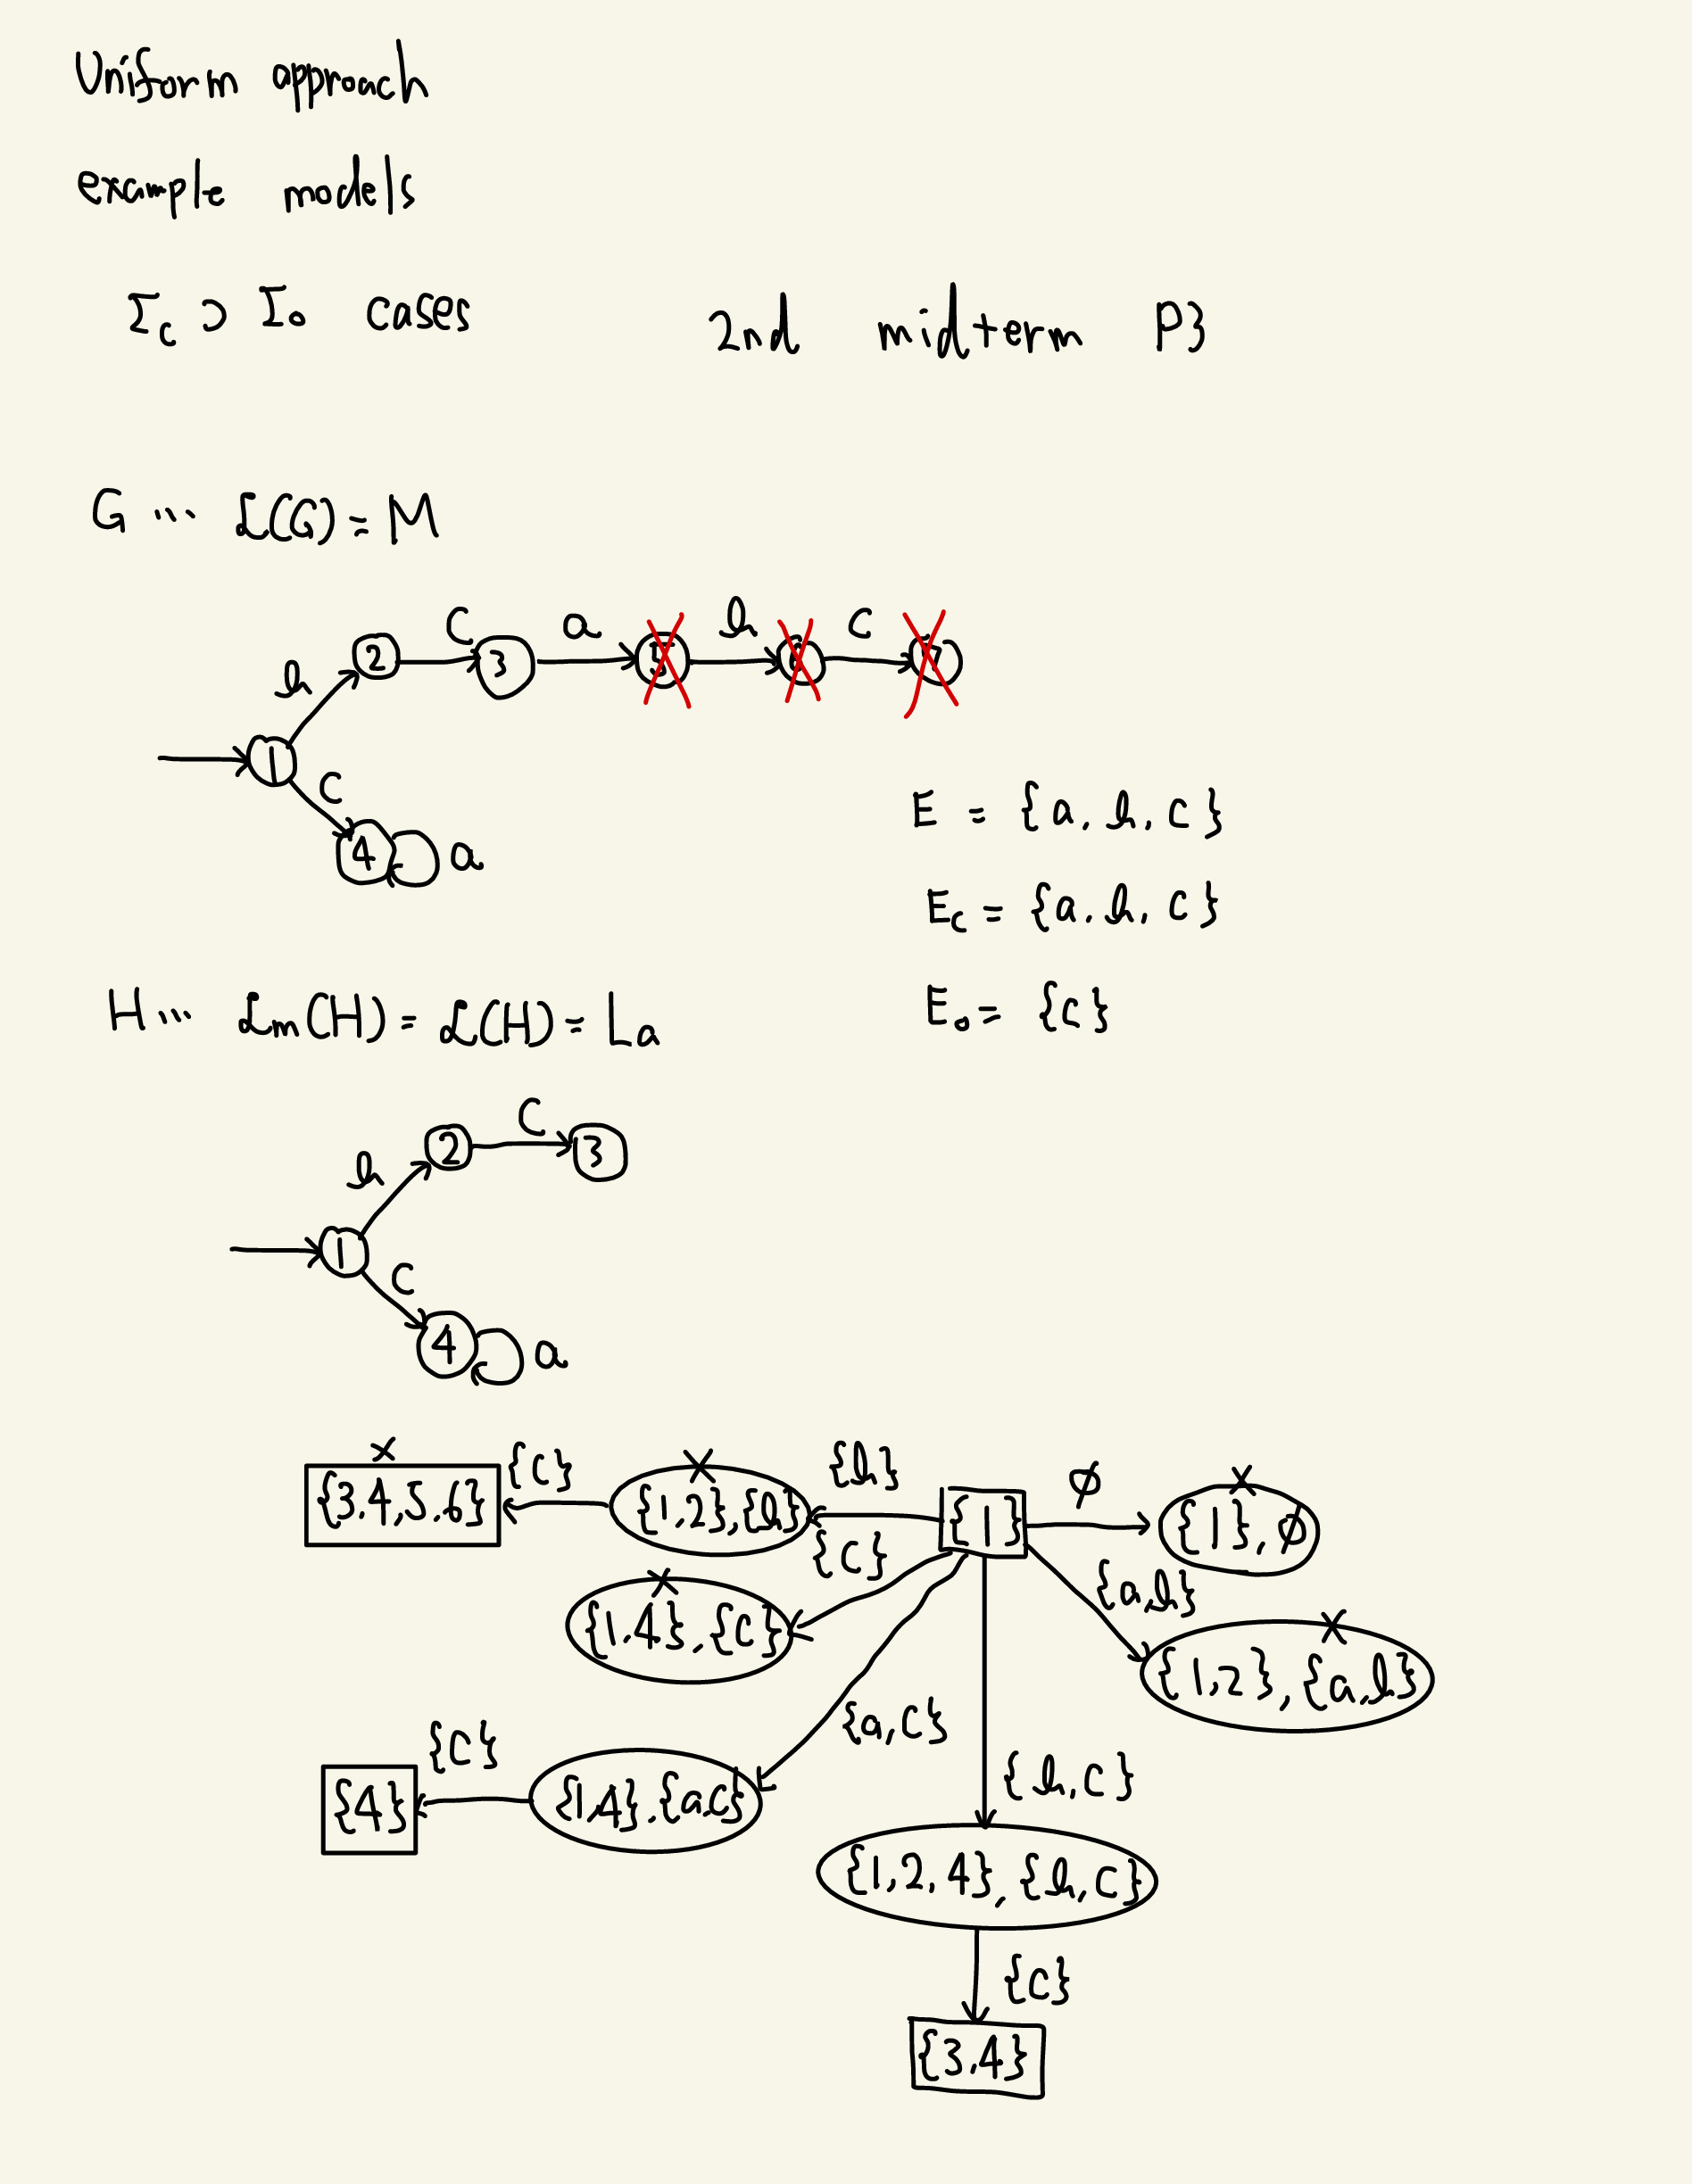 Uniform approach
example models
Σc ⊃ Σo cases
2nd midterm P3
G ... L(G) = M
b
2
C
3
a
5
b
C
7
1
C
4
a
E = {a, b, c}
Ec = {a, b, c}
Eo = {c}
H ... Lm(H) = L(H) = La
b
2
C
3
1
C
4
a
x
{3,4,5,6}
{c}
x
{1,2},{b}
{b}
{1}
∅
x
{1},∅
{c}
x
{1,4},{c}
{a,b}
x
{1,2},{a,b}
{a,c}
{c}
{4}
{1,4},{a,c}
{b,c}
{1,2,4},{b,c}
{c}
{3,4}